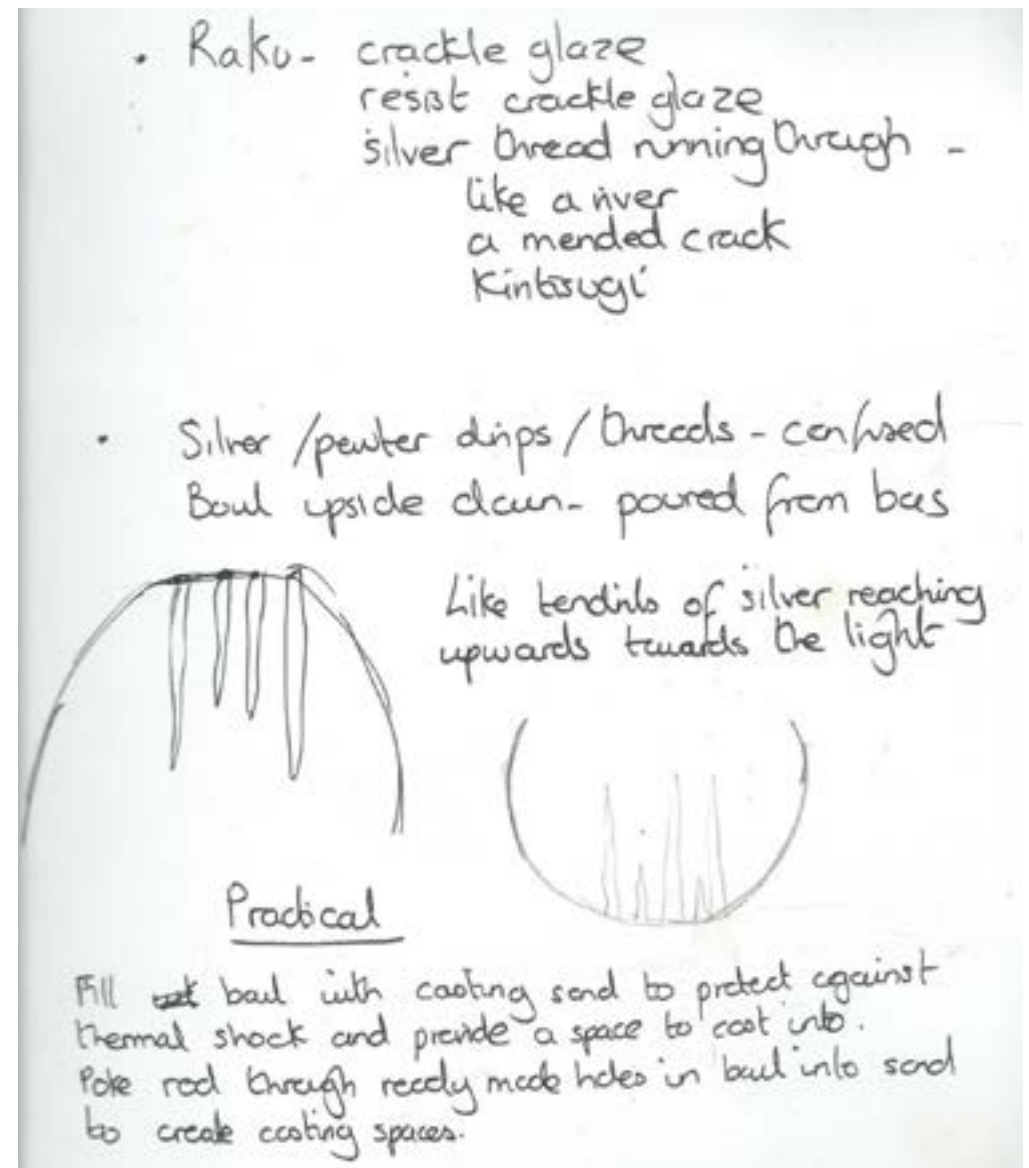 • Raku - crackle glaze
resist crackle glaze
silver thread running through -
like a river
a mended crack
Kintsugi
• Silver / pewter drips / threads - confused
Bowl upside down - poured from bas
Like tendrils of silver reaching
upwards towards the light
Practical
Fill bowl with casting sand to protect against
thermal shock and provide a space to cast into.
Poke rod through ready made holes in bowl into sand
to create casting spaces.